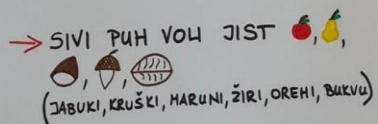 → SIVI PUH VOLI JIST , ,
(JABUKI, KRUŠKI, MARUNI, ŽIRI, OREHI, BUKVU)